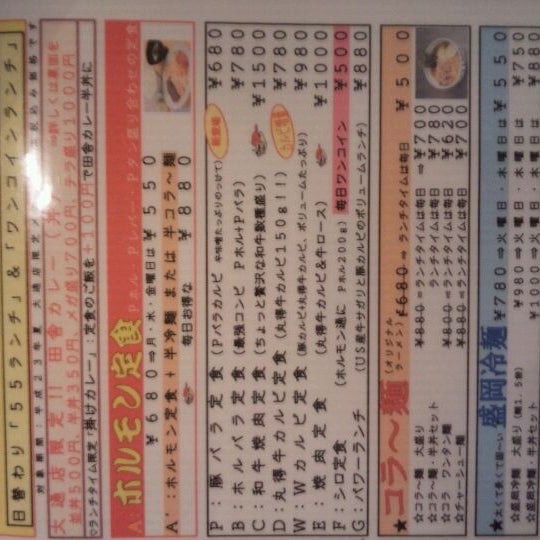 日替わり「55ランチ」&「ワンコインランチ」
対象期間:平成23年夏 大通店限定
大通店限定!! 田舎カレー
並丼500円、半丼350円、メガ盛り700円、テラ盛り1000円
▽ランチタイム限定「掛けカレー」:定食のご飯を+100円で田舎カレー半丼に
A:ホルモン定食 Pホル・Pレバー・Pタン盛り合わせの定食
¥680⇒月・水・金曜日は¥550
A':ホルモン定食+半冷麺 または 半コラ〜麺
毎日お得な ¥880
P:豚バラ定食 (Pバラカルビ 辛味噌たっぷりのっけて) ¥680
B:ホルバラ定食 (最強コンビ Pホル+Pバラ) ¥780
C:和牛焼肉定食 (ちょっと贅沢な和牛数種盛り) ¥1500
D:丸得牛カルビ定食 (丸得牛カルビ150g!!) ¥780
W:Wカルビ定食 (丸得牛カルビ+豚カルビ、ボリュームたっぷり) ¥980
E:焼肉定食 (丸得牛カルビ&牛ロース) ¥1000
F:シロ定食 (ホルモン通に Pホル200g) 毎日ワンコイン ¥500
G:パワーランチ (US産牛サガリと豚カルビのボリュームランチ) ¥880
★コラ〜麺 (オリジナルラーメン) ¥680⇒ランチタイムは毎日 ¥500
☆コラ〜麺 大盛り ¥880⇒ランチタイムは毎日⇒¥700
☆コラ〜麺 半丼セット ランチタイムは毎日 ¥780
☆コラ ワンタン麺 ¥880⇒ランチタイムは毎日 ¥620
☆チャーシュー麺 ¥880⇒ランチタイムは毎日 ¥700
★盛岡冷麺 ¥780⇒火曜日・木曜日は ¥550
☆盛岡冷麺 大盛り (麺1.5倍) ¥980⇒火曜日・木曜日は ¥750
☆盛岡冷麺 半丼セット ¥1000⇒火曜日・木曜日は ¥880